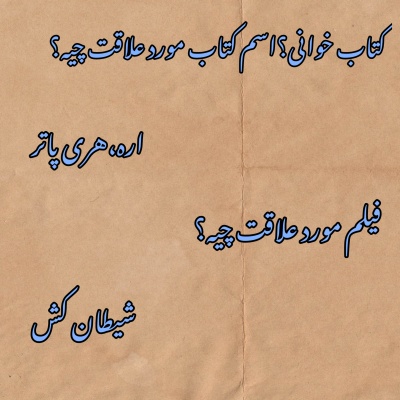 کتاب خوانی؟اسم کتاب مورد علاقت چیه؟
اره،هری پاتر
فیلم مورد علاقت چیه؟
شیطان کش